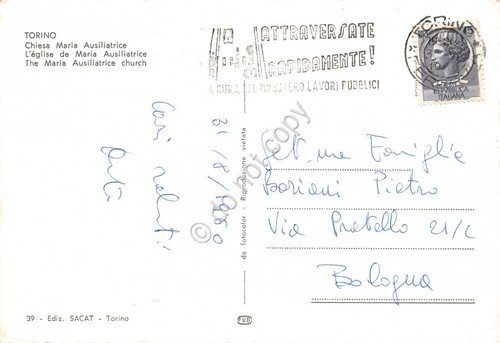 TORINO
Chiesa Maria Ausiliatrice
L'église de Maria Ausiliatrice
The Maria Ausiliatrice church
ATTRAVERSATE
RAPIDAMENTE!
A CURA DEL MINISTERO LAVORI PUBBLICI
TORINO
REPUBBLICA
ITALIANA
31/8/1960
Cari saluti
da fotocolor - Riproduzione vietata
do not copy
Famiglia
Pietro
Via Pratello 21/2
Bologna
39 - Ediz. SACAT - Torino